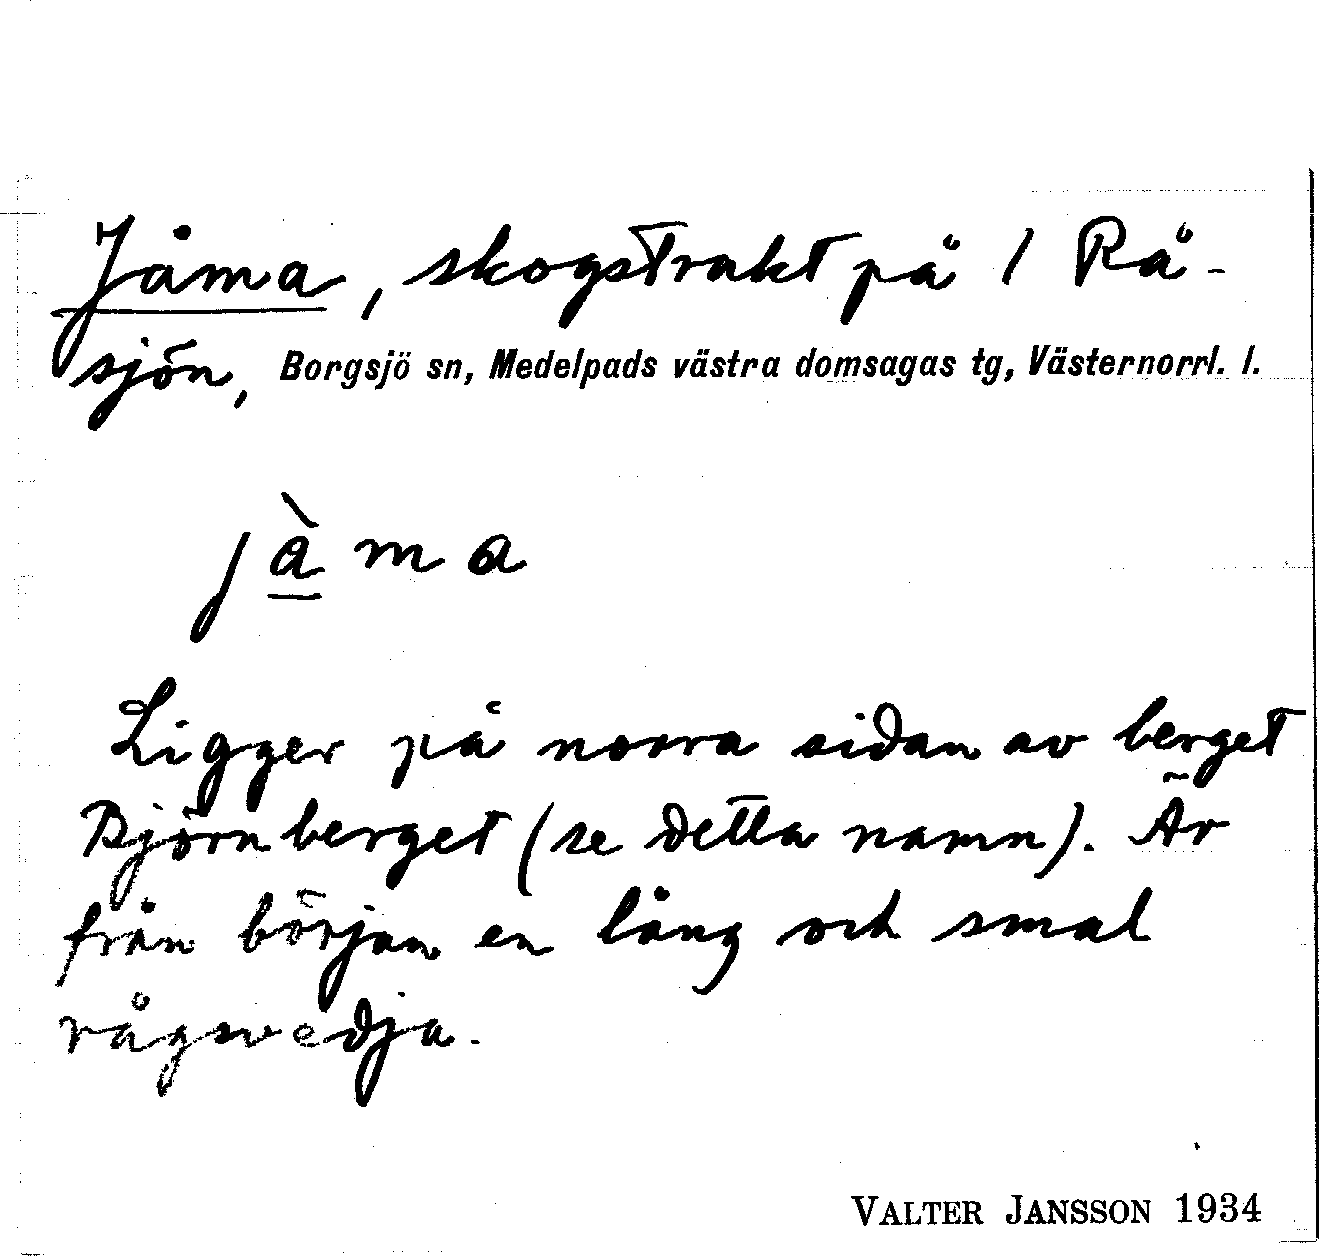 Jåma, skogstrakt på 1 Rå-
sjön, Borgsjö sn, Medelpads västra domsagas tg, Västernorrl. l.
jàma
Ligger på norra sidan av berget
Björnberget (se detta namn). Är
från början en lång och smal
rågsvedja.
VALTER JANSSON 1934